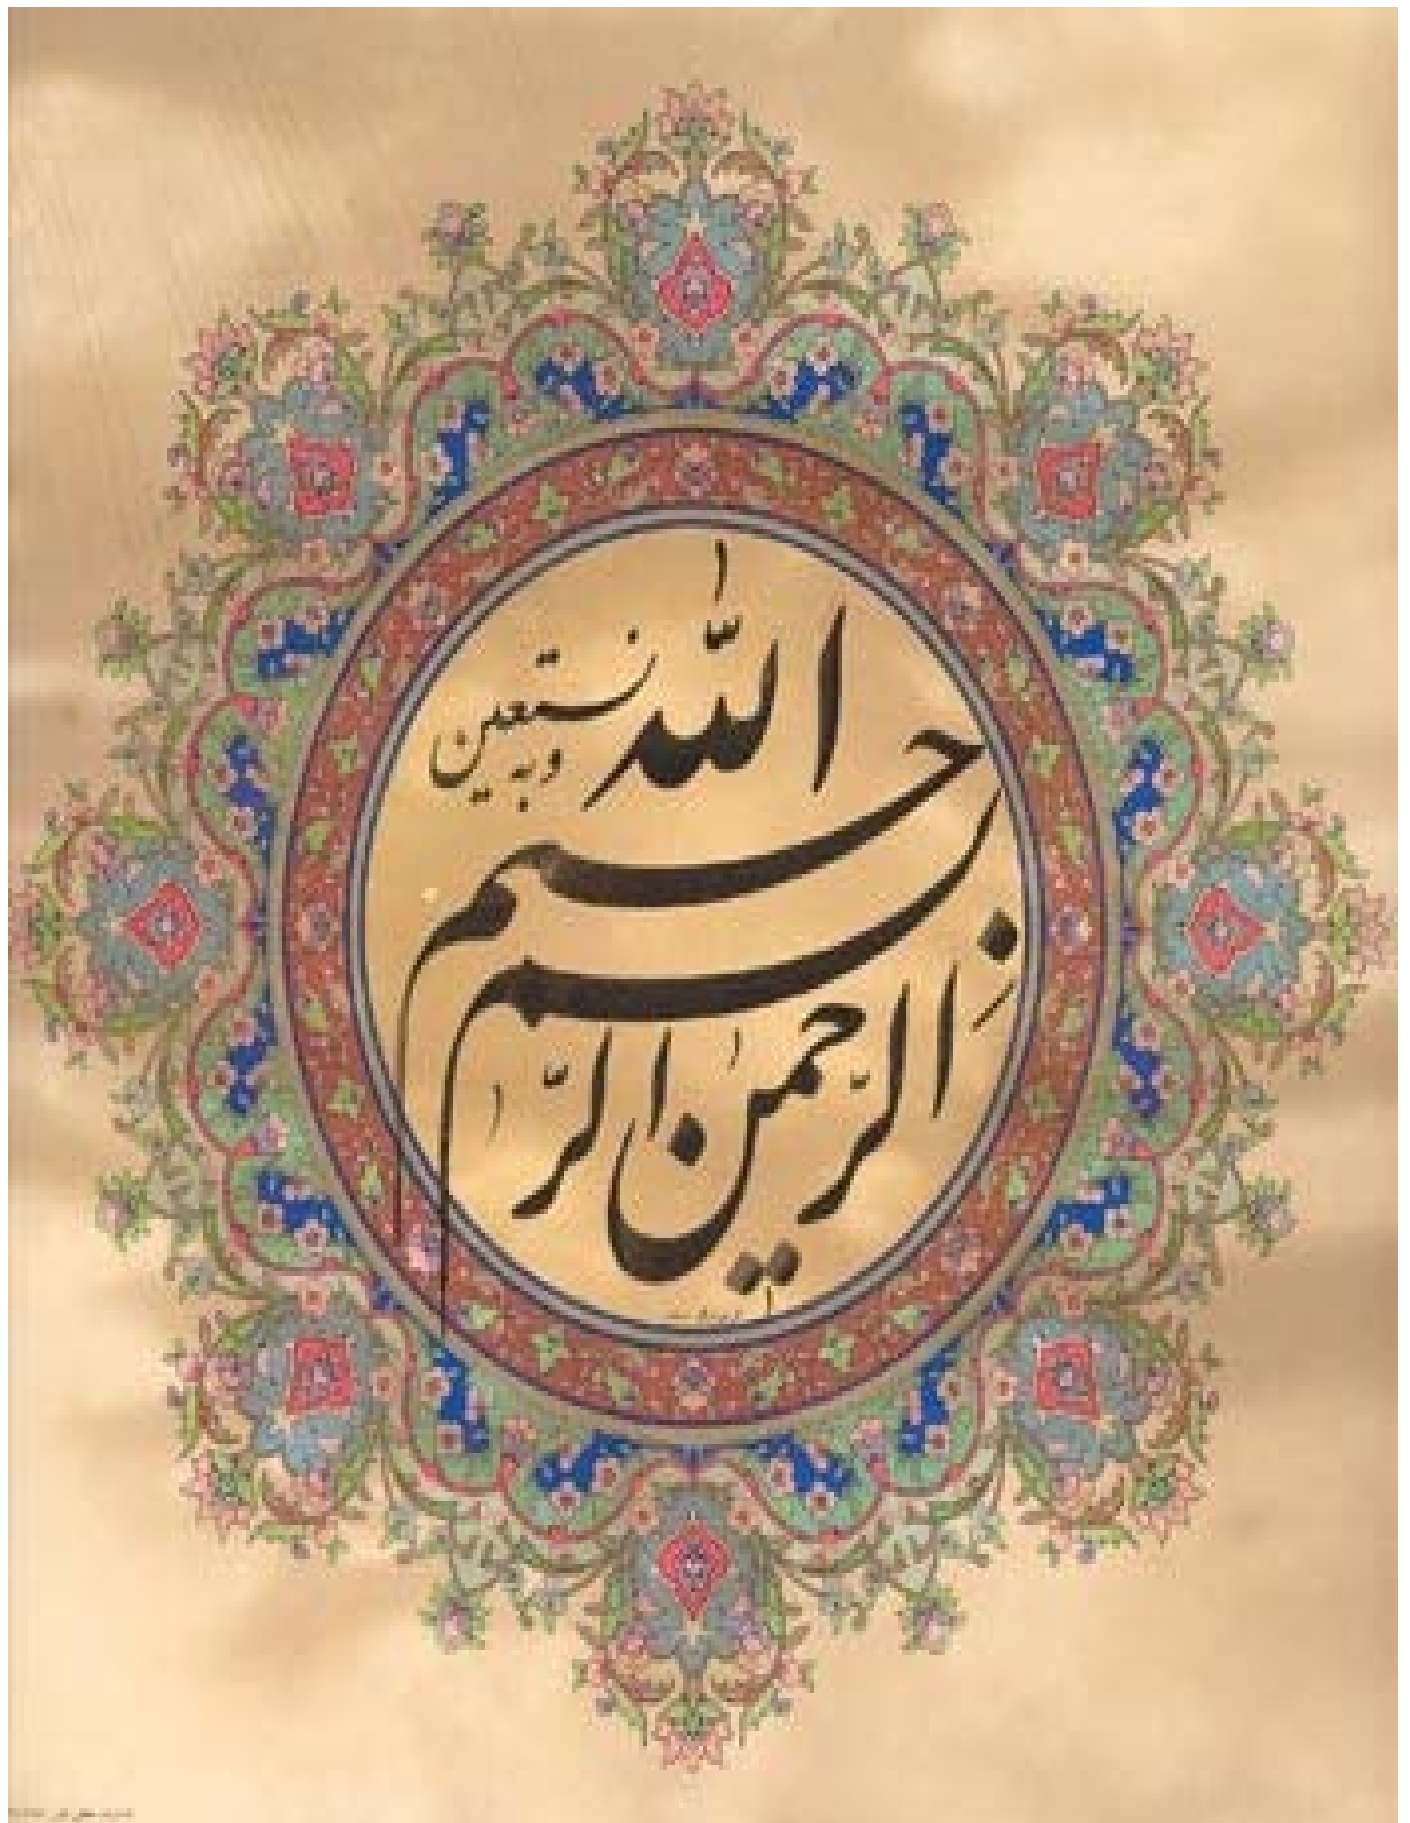 بِسم اللّٰه الرَّحمٰن الرَّحیم
و به نستعین